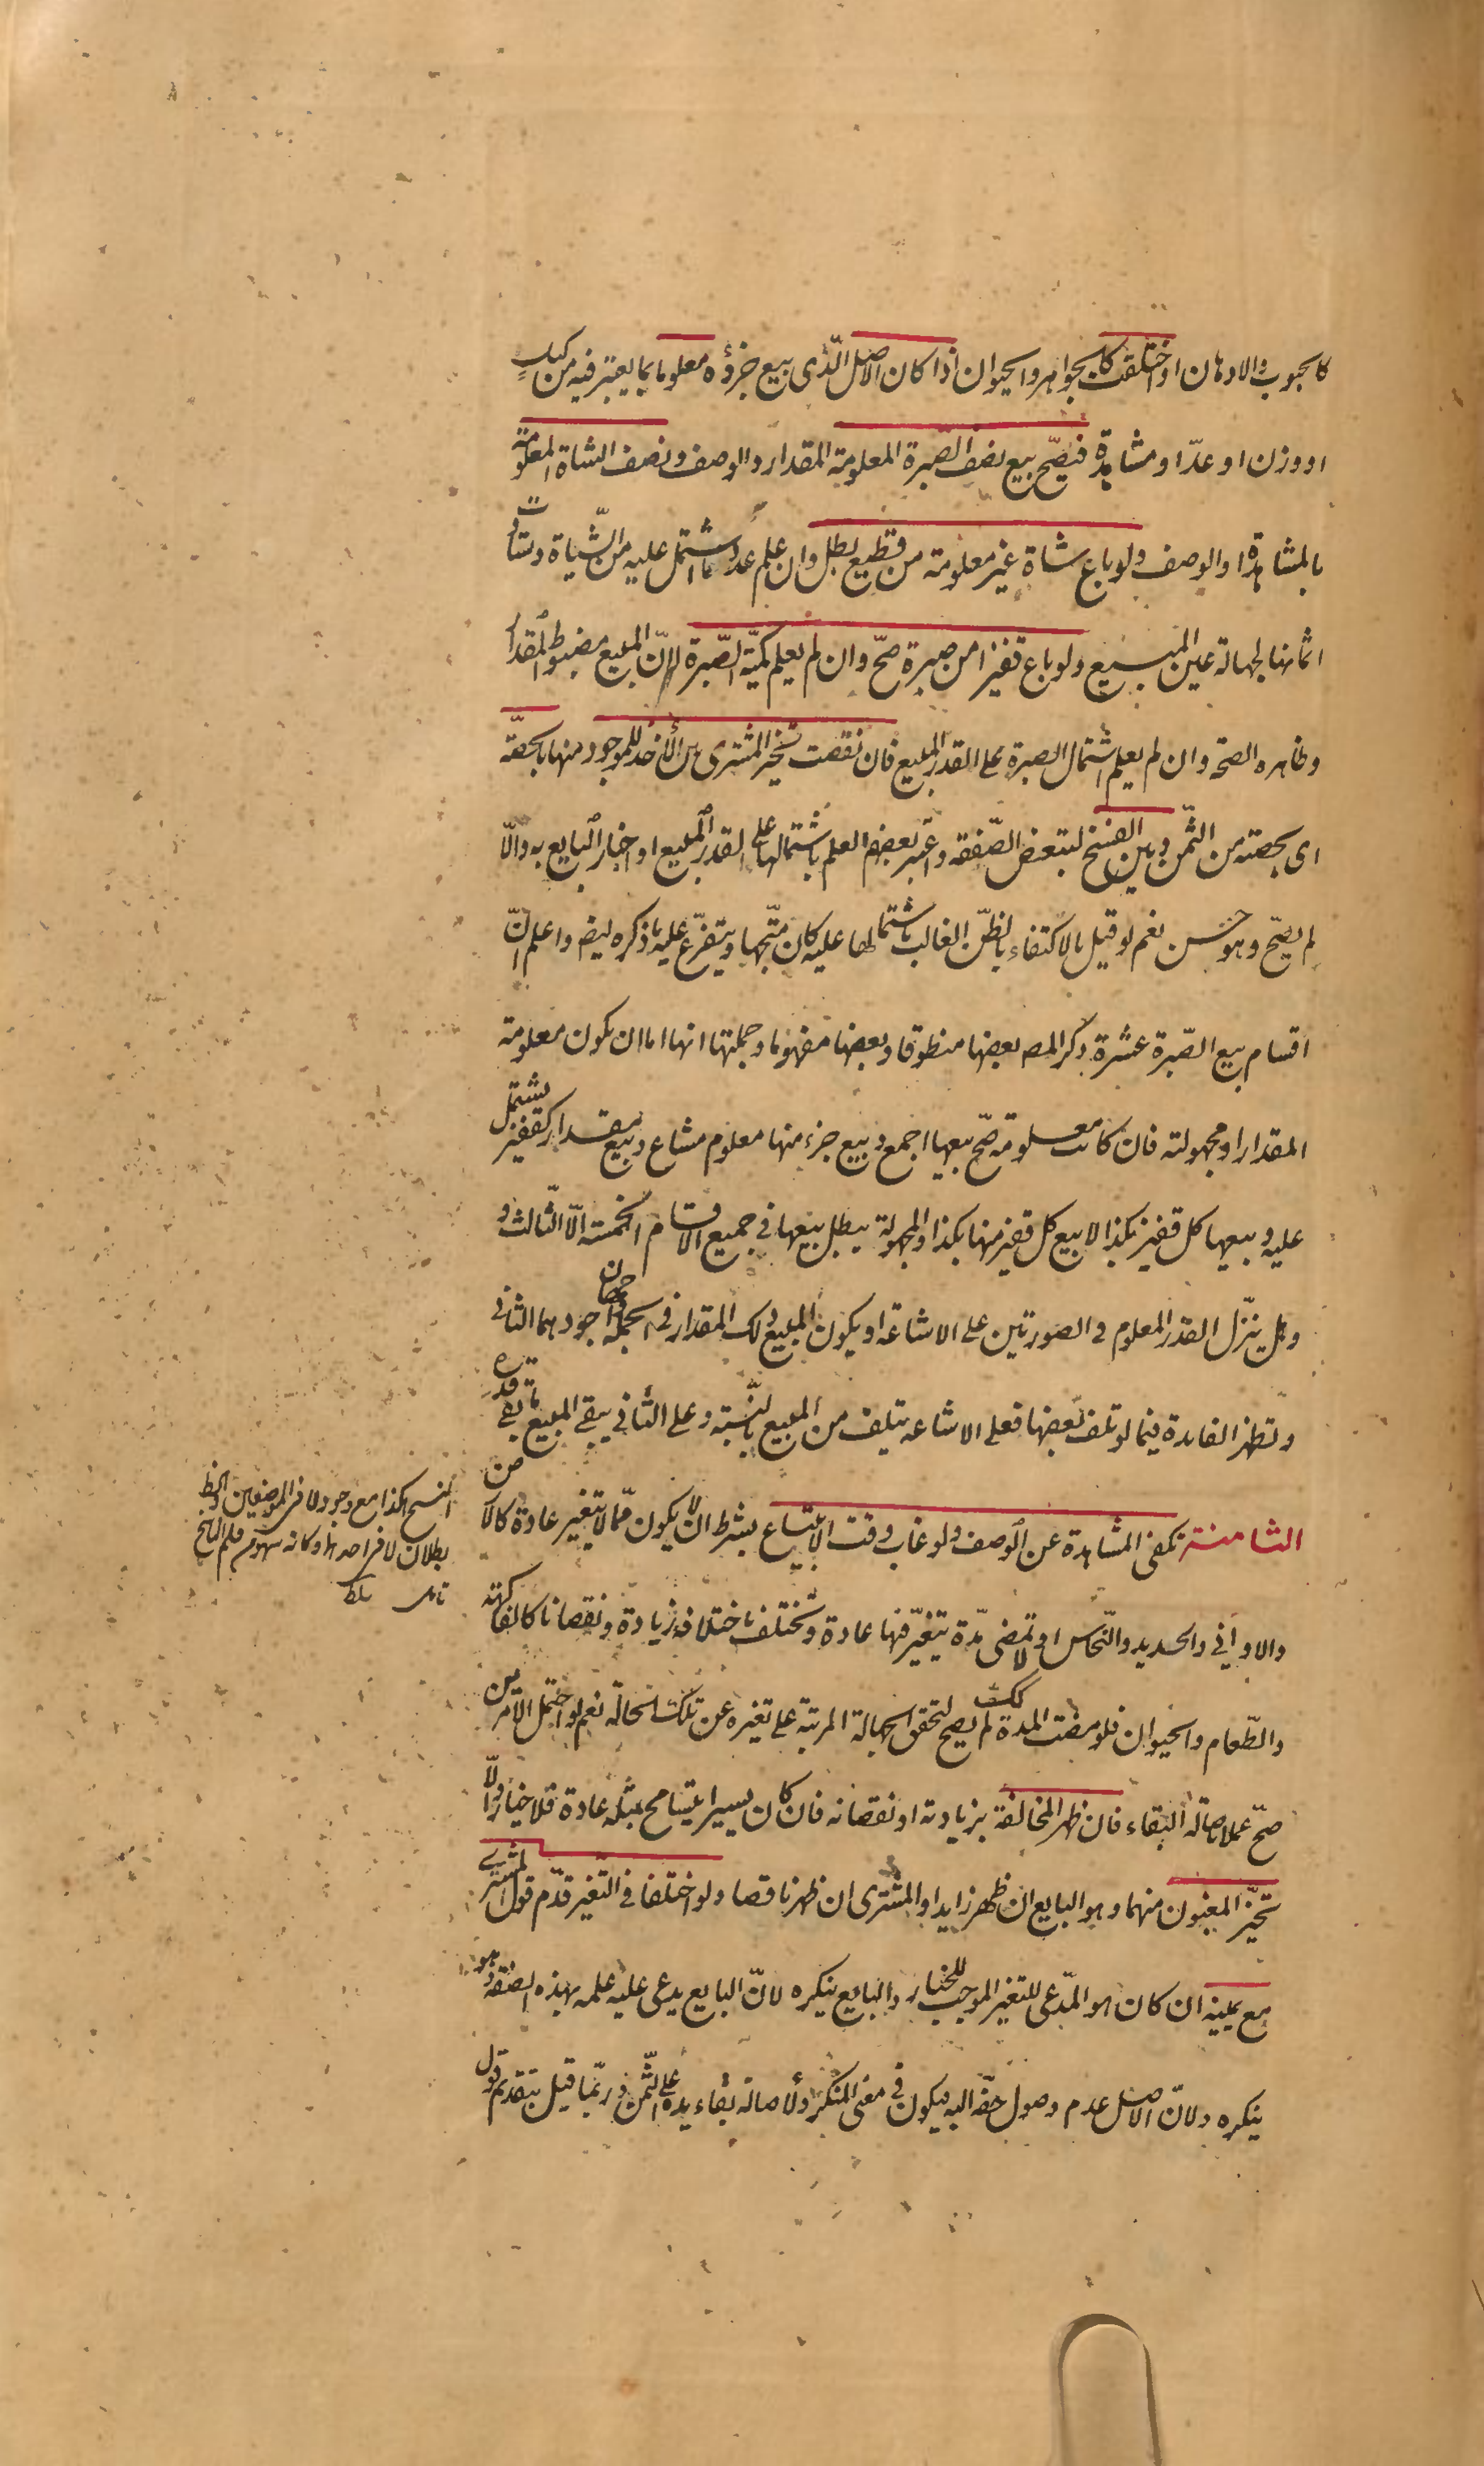 كالحبوب والادهان او اختلفت كالجواهر والحيوان اذا كان الاصل الّذى بيع جزؤه معلوما بما يعتبر فيه من كيل
او وزن او عدّ او مشاهدة فيصّح بيع نصف الصّبرة المعلومة المقدار والوصف ونصف الشاة المعلومة
بالمشاهدة او الوصف ولو باع شاة غير معلومة من قطيع بطل وان علم عدد ما اشتمل عليه من الشّياة وتساوت
اثمانها لجهالة عين المبيع ولو باع قفيزا من صبرة صحّ وان لم يعلم كميّة الصّبرة لانّ المبيع مضبوط المقدار
وظاهره الصحة وان لم يعلم اشتمال الصبرة على القدر المبيع فان نقصت تخيّر المشترى بين الأخذ للموجود منها بالحصّة
اى بحصته من الثّمن وبين الفسخ لتبعض الصّفقه واعتبر بعضهم العلم باشتمالها على القدر المبيع او اخبار البايع به والّا
لم يصحّ وهو حسن نعم لو قيل بالاكتفاء بالظنّ الغالب باشتمالها عليه كان متّجها ويتفرّع عليه ما ذكره ايض واعلم انّ
اقسام بيع الصّبرة عشرة ذكر المص بعضها منطوقا وبعضها مفهوما وجملتها انها اما ان يكون معلومة
المقدار او مجهولته فان كانت معلومة صّح بيعها اجمع وبيع جزء منها معلوم مشاع وبيع مقدار كقفيز يشتمل
عليه وبيعها كل قفيز بكذا لا بيع كل قفيز منها بكذا والمجهولة يبطل بيعها فى جميع الاقسام الخمسة الّا الثّالث و
هل ينزّل القدر المعلوم فى الصورتين على الاشاعة او يكون المبيع ذلك المقدار فى الجملة وجهان اجودهما الثانى
وتظهر الفايدة فيما لو تلف بعضها فعلى الاشاعه يتلف من المبيع بالنّسبة وعلى الثّانى يبقى المبيع ما بقى قدره
الثامنة تكفى المشاهدة عن الوصف ولو غاب وقت الابتياع بشرط ان لا يكون ممّا لا يتغير عادة كالارض
والاوانى والحديد والنّحاس او لا تمضى مدّة يتغيّر فيها عادة وتختلف باختلافه زيادة ونقصانا كالفاكهة
والطّعام والحيوان فلو مضت المدة كك لم يصح لتحقق الجهالة المرتبة على تغيره عن تلك الحالة نعم لو احتمل الامرين
صحّ عملا باصالة البقاء فان ظهر المخالفة بزيادته او نقصانه فان كان يسيرا يتسامح بمثله عادة فلا خيار والّا
تخيّر المغبون منهما وهو البايع ان ظهر زايدا والمشترى ان ظهر ناقصا ولو اختلفا فى التّغير قدّم قول المشترى
مع يمينه ان كان هو المدّعى للتغير الموجب للخيار والبايع ينكره لانّ البايع يدعى عليه علمه بهذه الصفة وهو
ينكره ولانّ الاصل عدم وصول حقّه اليه فيكون فى معنى المنكر ولأصالة بقاء يده على الثّمن وربّما قيل بتقديم قول
النسخ هكذا مع وجود لا فى الموضعين والظ
بطلان لا فى احدهما وكانه سهو من قلم الناسخ